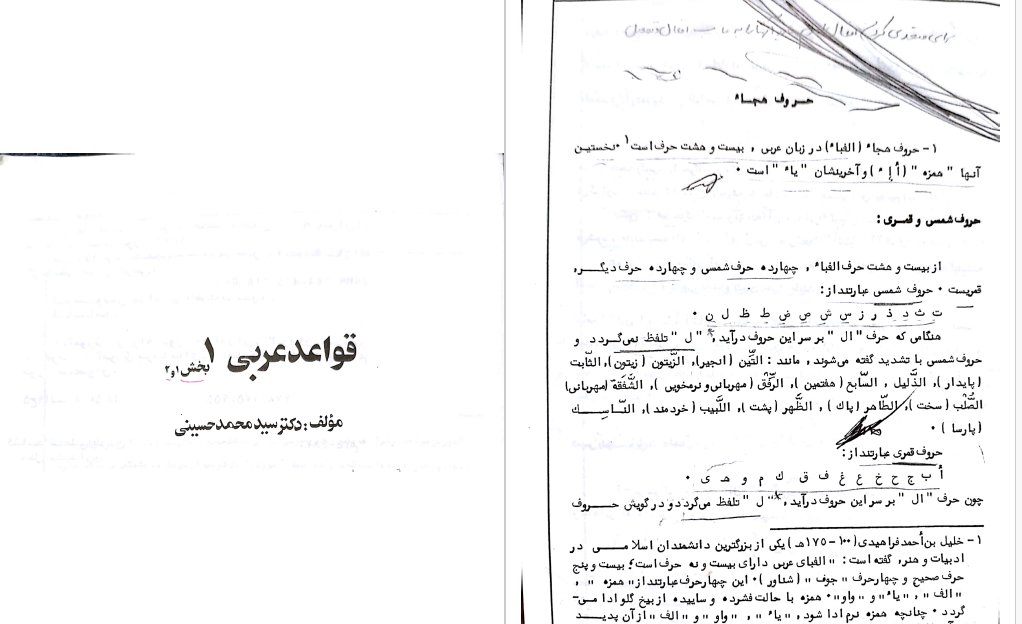 حروف هجاء
۱- حروف هجاء (الفباء) در زبان عربی , بیست و هشت حرف است۱ ۰ نخستین
آنها " همزه " (أ إ ء ) و آخرینشان " یاء " است ۰
حروف شمسی و قمری :
از بیست و هشت حرف الفباء , چهارده حرف شمسی و چهارده حرف دیگر,
قمریست ۰ حروف شمسی عبارتند از :
ت ث د ذ ر ز س ش ص ض ط ظ ل ن ۰
هنگامی که حرف " ال " بر سر این حروف درآید, " ل " تلفظ نمی‌گردد و
حروف شمسی با تشدید گفته می‌شوند, مانند : التّین (انجیر), الزّیتون ( زیتون), الثّابت
(پایدار), الذّلیل , السّابع ( هفتمین ), الرّفق ( مهربانی و نرمخویی ), الشّفقة (مهربانی)
الصّلب ( سخت ), الطّاهر ( پاك ), الظّهر ( پشت ), اللّبیب ( خردمند ), النّاسك
( پارسا ) ۰
حروف قمری عبارتند از :
أ ب ج ح خ ع غ ف ق ك م و هـ ی ۰
چون حرف " ال " بر سر این حروف درآید, " ل " تلفظ می‌گردد و در گویش حروف
۱- خلیل بن أحمد فراهیدی (۱۰۰-۱۷۵ هـ ) یکی از بزرگترین دانشمندان اسلامی در
ادبیات و هنر, گفته است : " الفبای عربی دارای بیست و نه حرف است ؛ بیست و پنج
حرف صحیح و چهار حرف " جوف " ( شناور ) ۰ این چهار حرف عبارتند از " همزه " ,
" الف " , " یاء " و " واو" ۰ همزه با حالت فشرده و ساییده از بیخ گلو ادا می-
گردد ۰ چنانچه همزه نرم ادا شود, " یاء " , " واو" و " الف " از آن پدید
قواعد عربی ۱
بخش ۱و۲
مؤلف : دکتر سید محمد حسینی